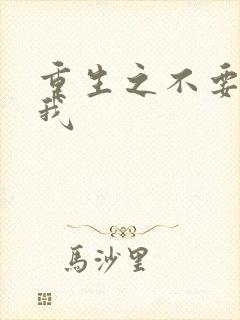 重生之不要
我
馬沙里